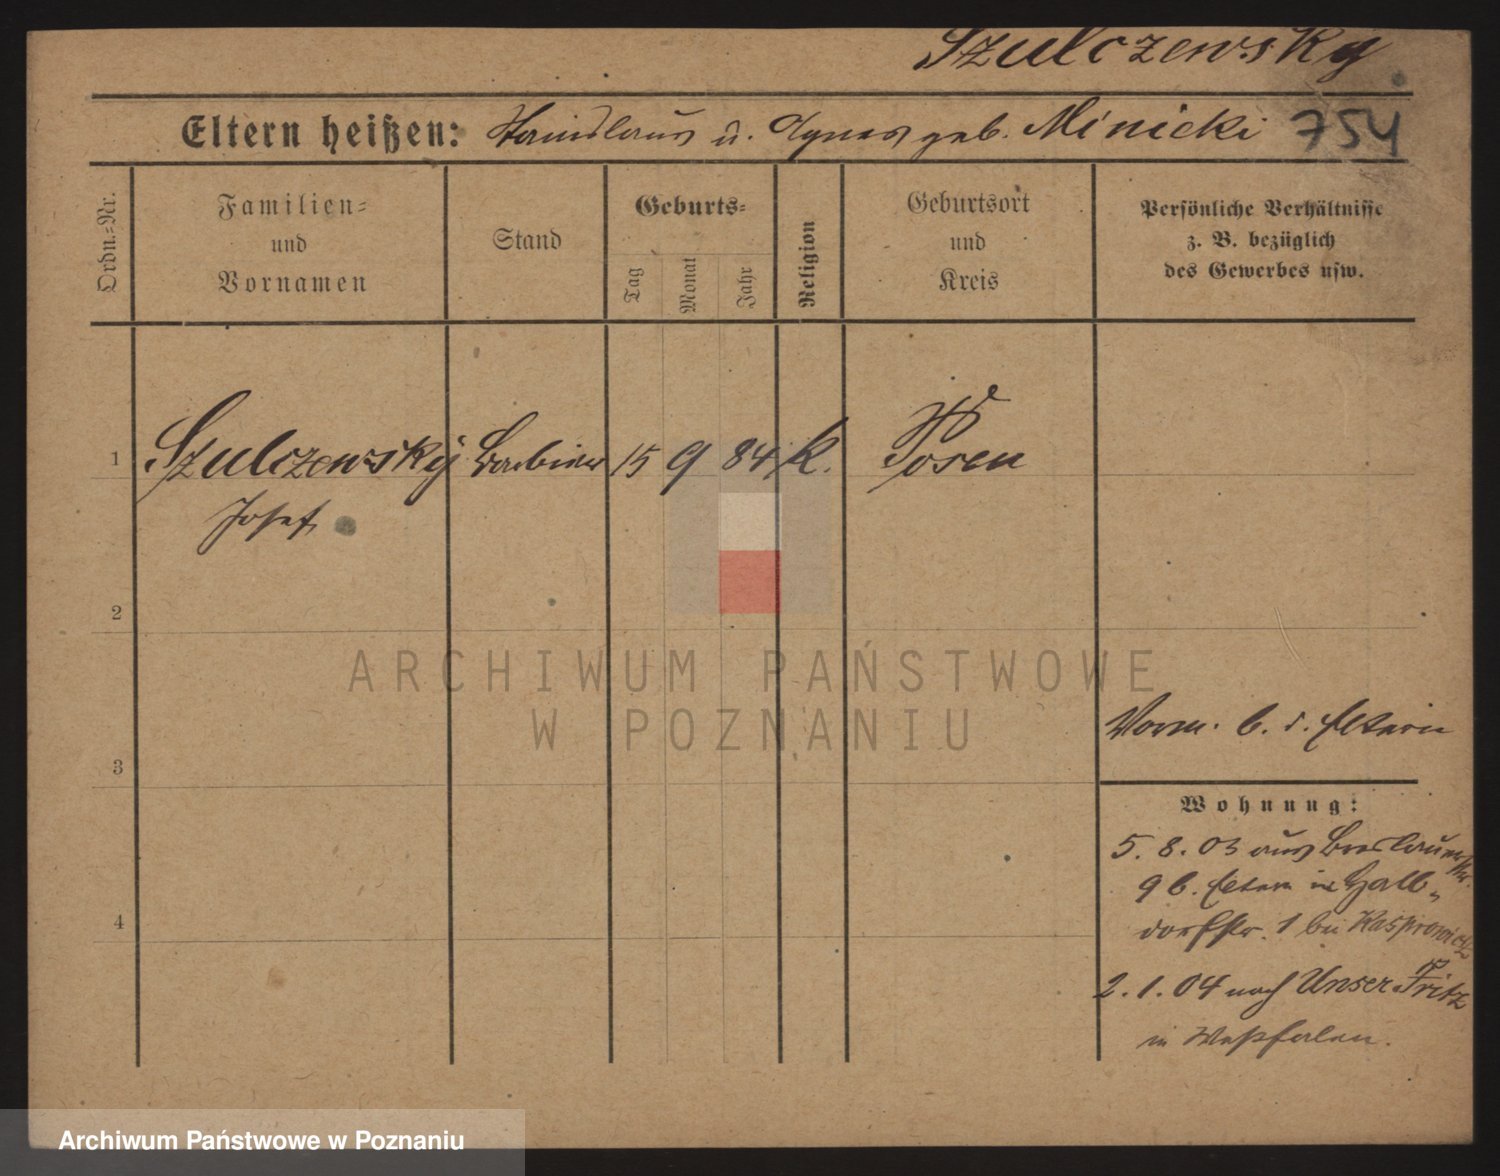 Szulczewsky
Eltern heißen: Stanislaus u. Agnes geb. Minicki 754
Ordn.-Nr.
Familien-
und
Vornamen
Stand
Geburts-
Tag
Monat
Jahr
Religion
Geburtsort
und
Kreis
Persönliche Verhältnisse
z. B. bezüglich
des Gewerbes usw.
1 Szulczewsky Barbier 15 9 84 k. Posen
Josef
2
3
4
Vorm. b. d. Eltern
Wohnung:
5. 8. 03 aus Breslauerstr.
9 b. Eltern in Halb-
dorfstr. 1 bei Kasprowicz
2. 1. 04 nach Unser Fritz
in Westfalen.
ARCHIWUM PAŃSTWOWE
W POZNANIU
Archiwum Państwowe w Poznaniu